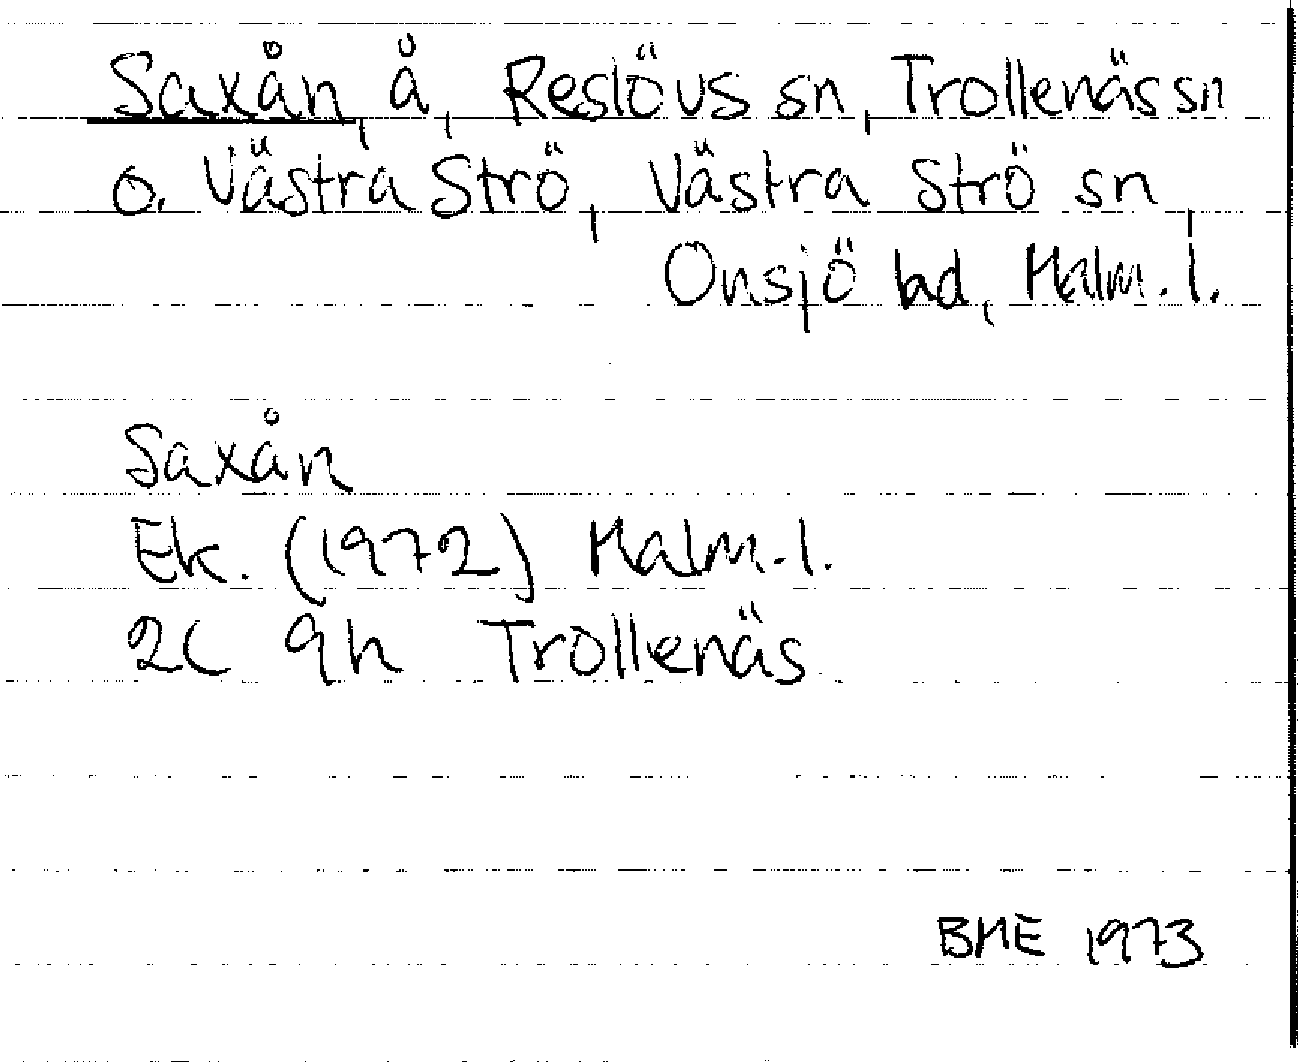 Saxån, å, Reslövs sn, Trollenäs sn
o. Västra Strö, Västra Strö sn,
Onsjö hd, Malm. l.
Saxån
Ek. (1972) Malm. l.
2C 9h Trollenäs
BME 1973